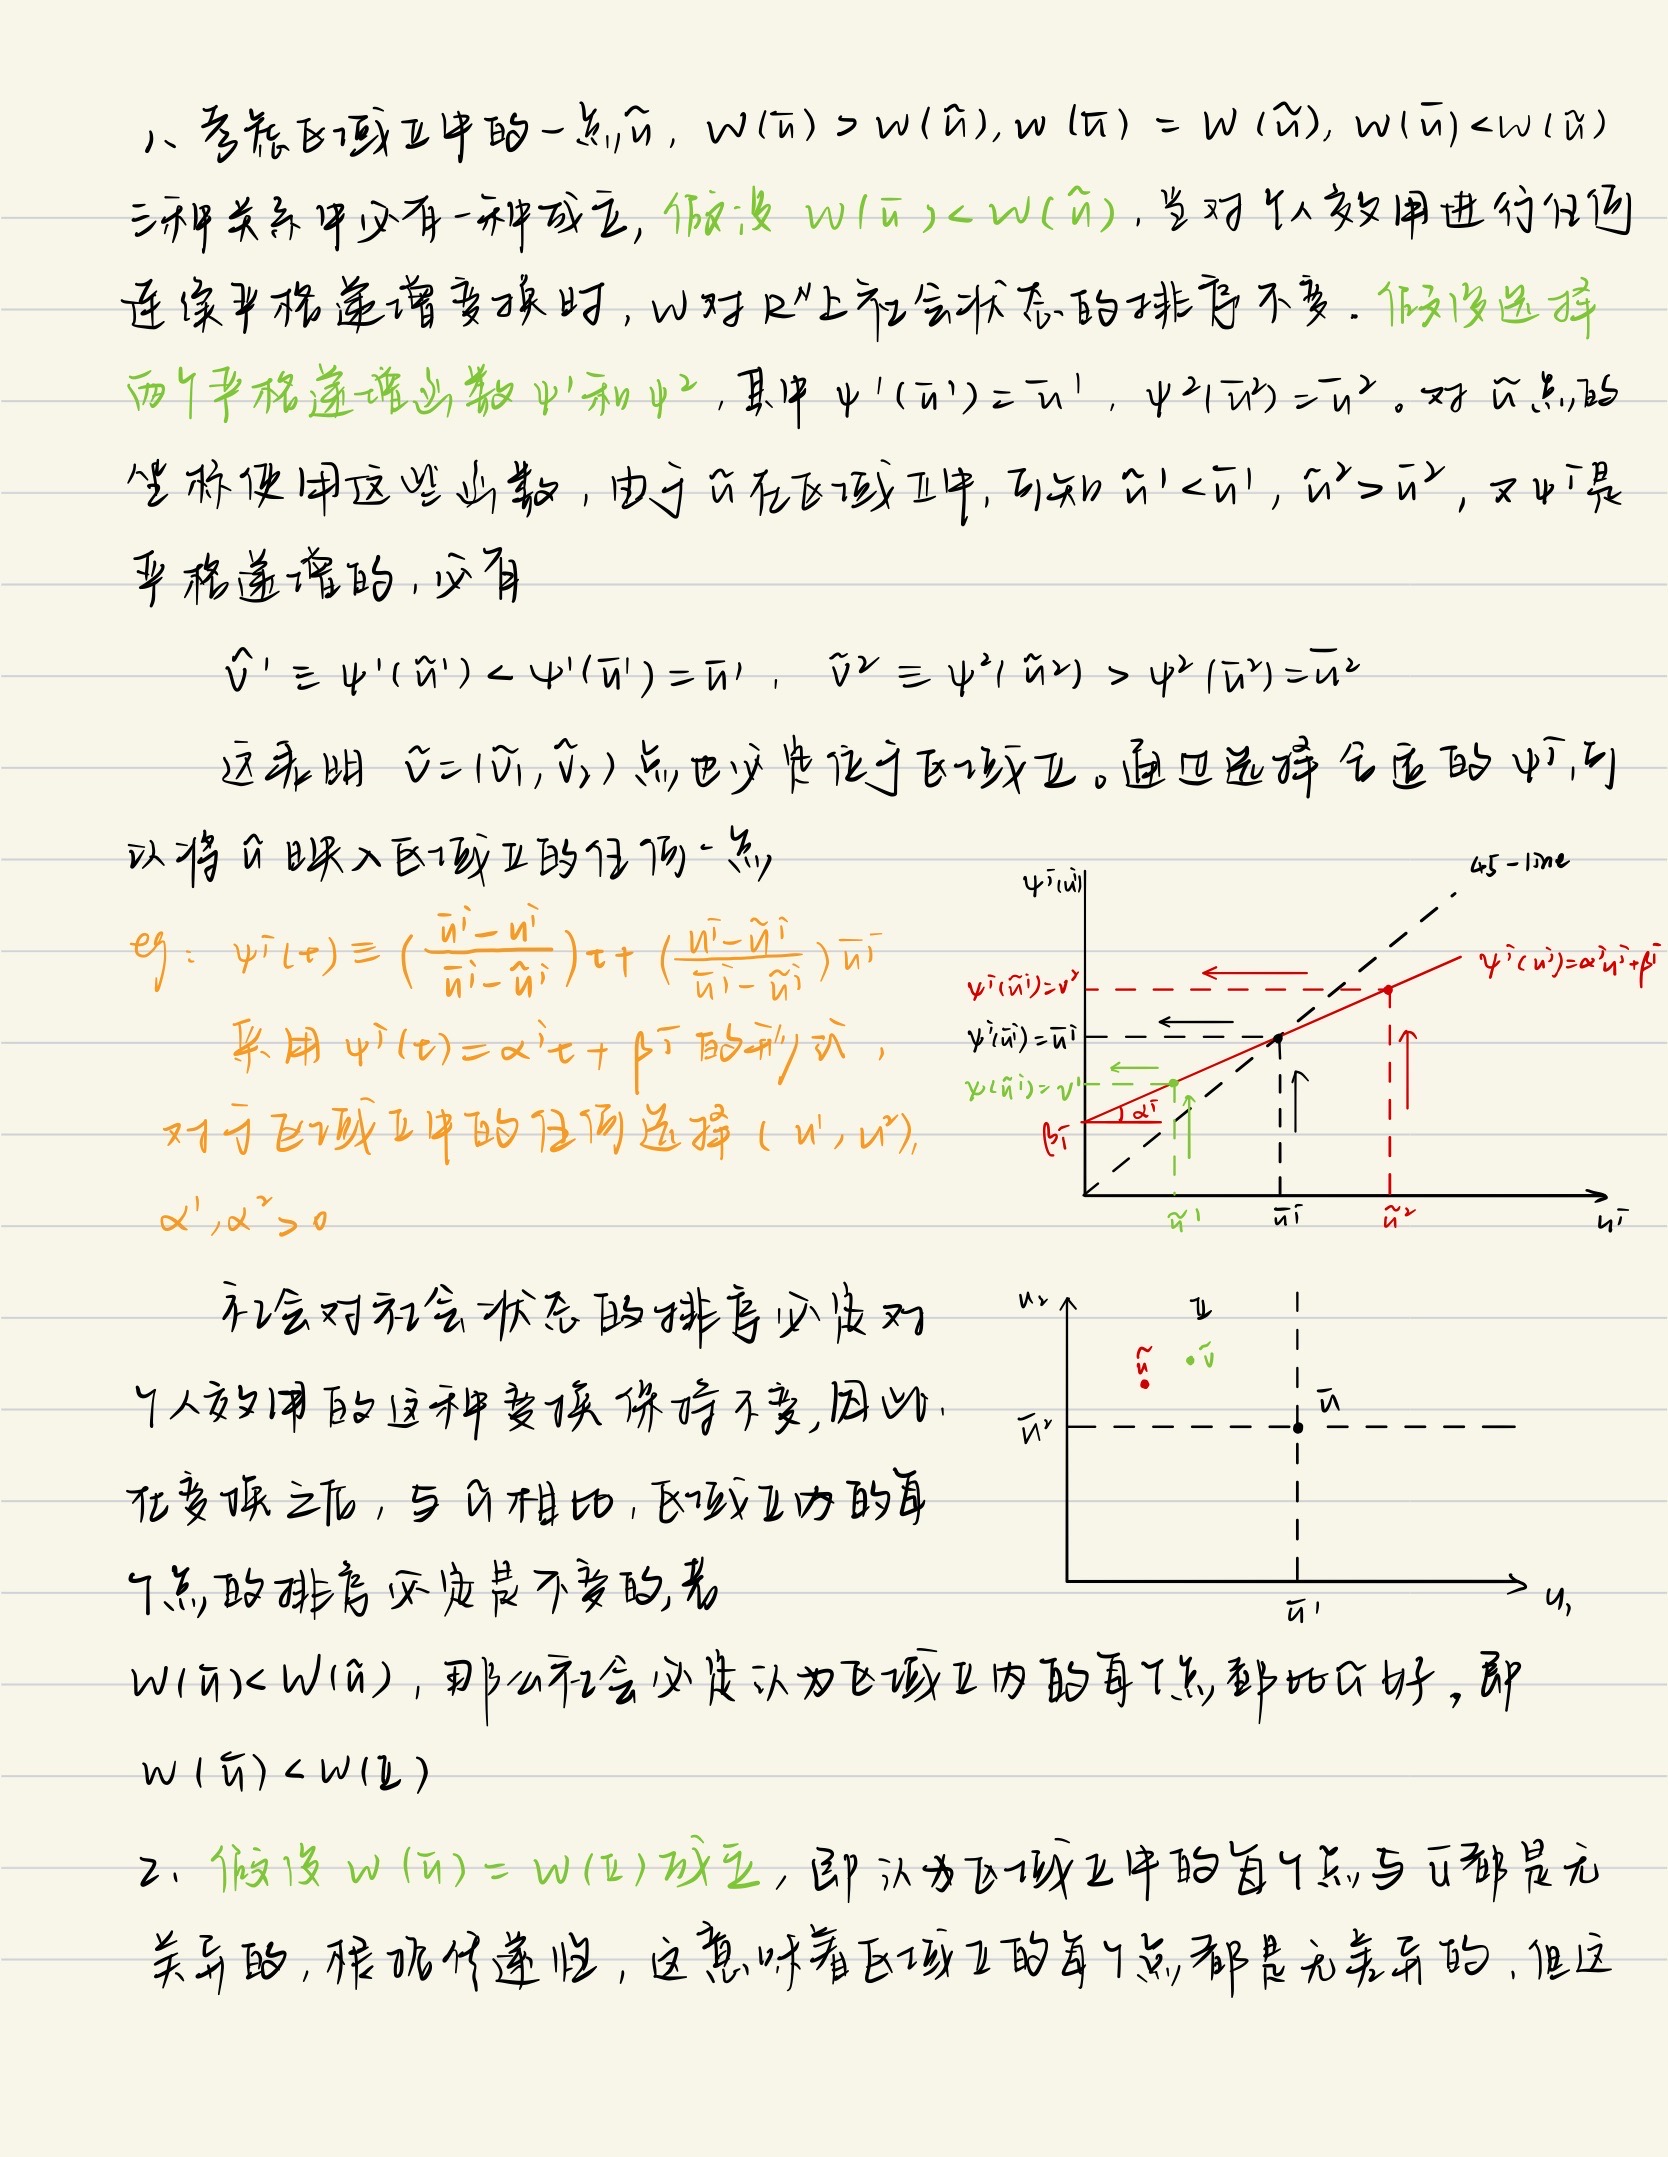 1、考虑区域Ⅱ中的一点ũ, W(ū) > W(ũ), W(ū) = W(ũ), W(ū) < W(ũ)
三种关系中必有一种成立, 假设 W(ū) < W(ũ), 当对个人效用进行任何
连续严格递增变换时, W对Rᴺ上社会状态的排序不变. 假设选择
两个严格递增函数ψ¹和ψ², 其中 ψ¹(ū¹) = ū¹, ψ²(ū²) = ū²。对ũ点的
坐标使用这些函数, 由于ũ在区域Ⅱ中, 可知ũ¹ < ū¹, ũ² > ū², 又ψⁱ是
严格递增的, 必有
ṽ¹ ≡ ψ¹(ũ¹) < ψ¹(ū¹) = ū¹, ṽ² ≡ ψ²(ũ²) > ψ²(ū²) = ū²
这表明 ṽ = (ṽ₁, ṽ₂) 点也必定位于区域Ⅱ。通过选择合适的ψⁱ, 可
以将ũ映入区域Ⅱ的任何一点
eg: ψⁱ(t) ≡ ((ūⁱ - uⁱ)/(ūⁱ - ũⁱ))t + ((uⁱ - ũⁱ)/(ūⁱ - ũⁱ))ūⁱ
采用 ψⁱ(t) = αⁱt + βⁱ 的形式,
对于区域Ⅱ中的任何选择 (u¹, u²),
α¹, α² > 0
ψⁱ(uⁱ)
45-line
ψⁱ(uⁱ)=αⁱuⁱ+βⁱ
ψⁱ(ũⁱ)=v²
ψⁱ(ūⁱ)=ūⁱ
ψ(ũⁱ)=v¹
αⁱ
βⁱ
ũ¹ ūⁱ ũ² uⁱ
社会对社会状态的排序必定对
个人效用的这种变换保持不变, 因此,
在变换之后, 与ū相比, 区域Ⅱ内的每
个点的排序必定是不变的, 若
u₂ Ⅱ
ũ ṽ
ū
ū²
ū¹ u₁
W(ū) < W(ũ), 那么社会必定认为区域Ⅱ内的每个点都比ū好。即
W(ū) < W(Ⅱ)
2、假设 W(ū) = W(Ⅱ) 成立, 即认为区域Ⅱ中的每个点与ū都是无
差异的, 根据传递性, 这意味着区域Ⅱ的每个点都是无差异的, 但这